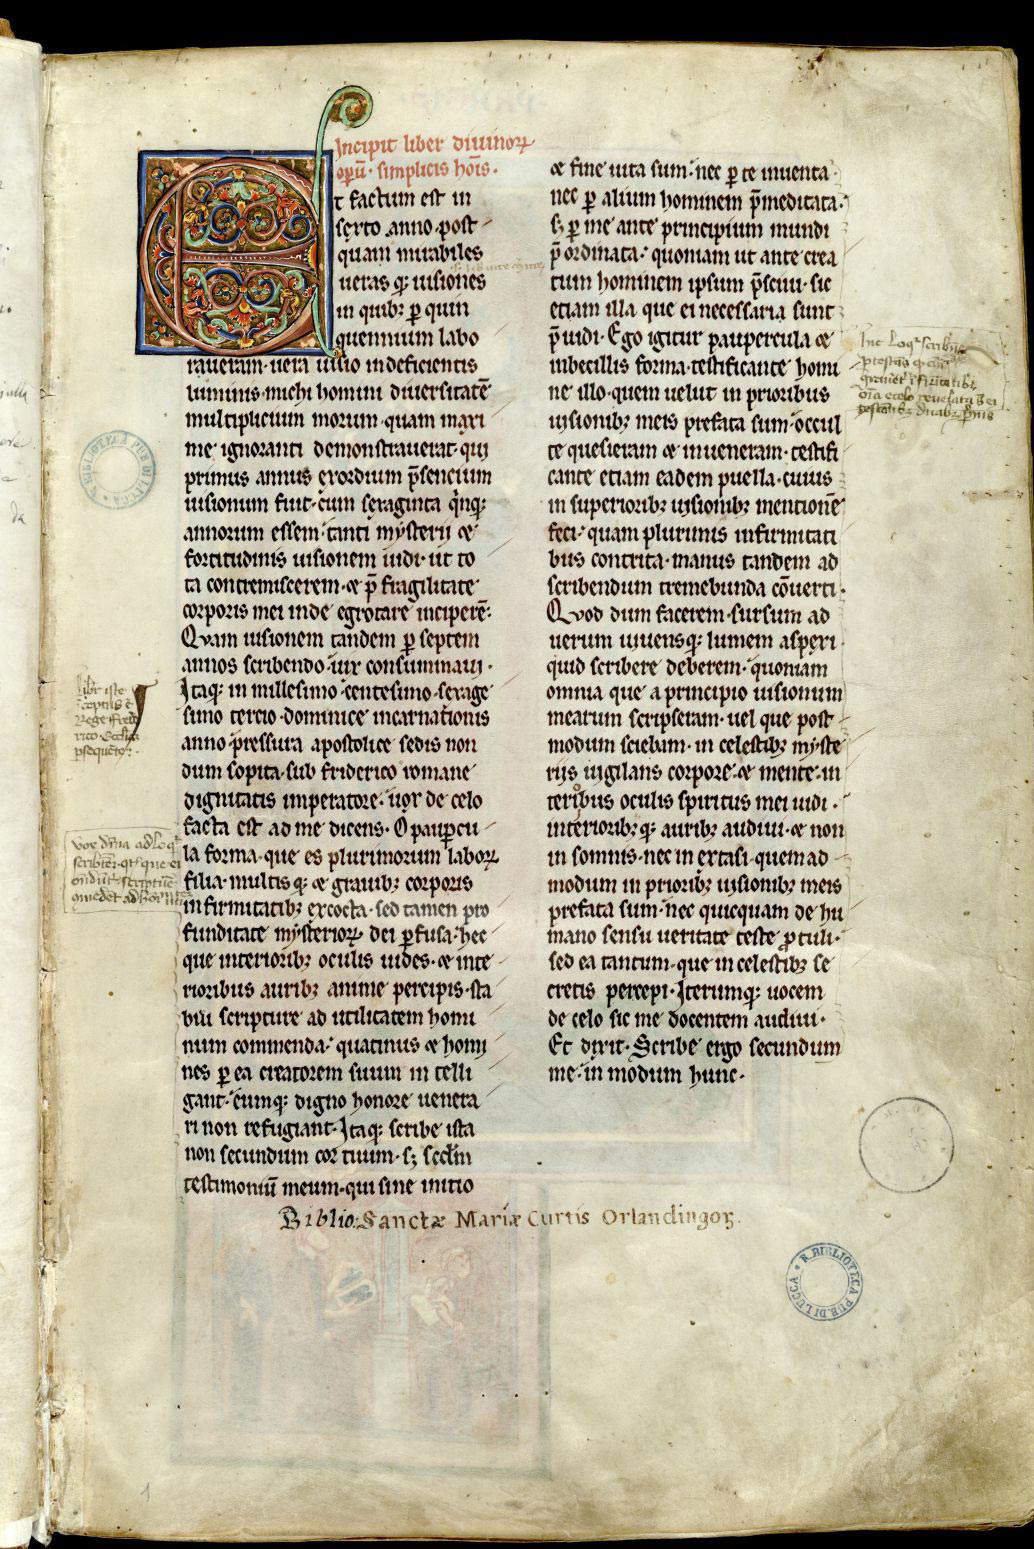 Incipit liber diuinoꝝ
opeꝝ̄ · simplicis hōis ·
Et factum est in
sexto anno post
quam mirabiles
ueras qꝫ uisiones
in quibꝫ ꝑ quin
quennium labo
raueram · uera uisio indeficientis
luminis · michi homini diuersitatē
multiplicium morum · quam maxi
me ignoranti demonstrauerat · qui
primus annus exordium p̄sencium
uisionum fuit · cum sexaginta q̇nqꝫ
annorum essem · tanti mysterij ⁊
fortitudinis uisionem uidi · ut to
ta contremiscerem · ⁊ p̄ fragilitate
corporis mei inde egrotare inciperē ·
Quam uisionem tandem ꝑ septem
annos scribendo uix consummaui ·
Itaqꝫ in millesimo centesimo sexage
simo tercio · dominice incarnationis
anno pressura apostolice sedis non
dum sopita · sub friderico romane
dignitatis imperatore · uox de celo
facta est ad me dicens · O pauꝑcu
la forma · que es plurimorum laboꝝ
filia · multis qꝫ ⁊ grauibꝫ corporis
infirmitatibꝫ excocta · sed tamen pro
funditate mysterioꝝ dei ꝑfusa · hec
que interioribꝫ oculis uides · ⁊ inte
rioribus auribꝫ anime percipis · sta
bili scripture ad utilitatem homi
num commenda · quatinus ⁊ homi
nes ꝑ ea creatorem suum in telli
gant · eumqꝫ digno honore uenera
ri non refugiant · Itaqꝫ scribe ista
non secundum cor tuum · sꝫ scdm̄
testimoniū meum · qui sine initio
⁊ fine uita sum · nec ꝑ te inuenta ·
nec ꝑ alium hominem p̄meditata ·
sꝫ ꝑ me ante principium mundi
p̄ordinata · quoniam ut ante crea
tum hominem ipsum p̄sciui · sic
etiam illa que ei necessaria sunt
p̄uidi · Ego igitur paupercula ⁊
inbecillis forma · testificante homi
ne illo · quem uelut in prioribus
uisionibꝫ meis prefata sum · occul
te quesieram ⁊ inueneram · testifi
cante etiam eadem puella · cuius
in superioribꝫ uisionibꝫ mentionē
feci · quam plurimis infirmitati
bus contrita · manus tandem ad
scribendum tremebunda cōuerti ·
Quod dum facerem · sursum ad
uerum uiuensqꝫ lumem aspexi ·
quid scribere deberem · quoniam
omnia que a principio uisionum
mearum scripseram · uel que post
modum sciebam · in celestibꝫ myste
rijs uigilans corpore ⁊ mente · in
terioribus oculis spiritus mei uidi ·
interioribꝫ qꝫ auribꝫ audiui · ⁊ non
in somnis · nec in extasi · quem ad
modum in prioribꝫ uisionibꝫ meis
prefata sum · nec quicquam de hu
mano sensu ueritate teste ꝓtuli ·
sed ea tantum · que in celestibꝫ se
cretis percepi · Iterumqꝫ uocem
de celo sic me docentem audiui ·
Et dixit · Scribe ergo secundum
me · in modum hunc ·
Biblio: Sanctæ Mariæ Curtis Orlandingoꝝ.
R. BIBLIOTECA PUB. DI LUCCA
R. BIBLIOTECA PUB. DI LUCCA
1